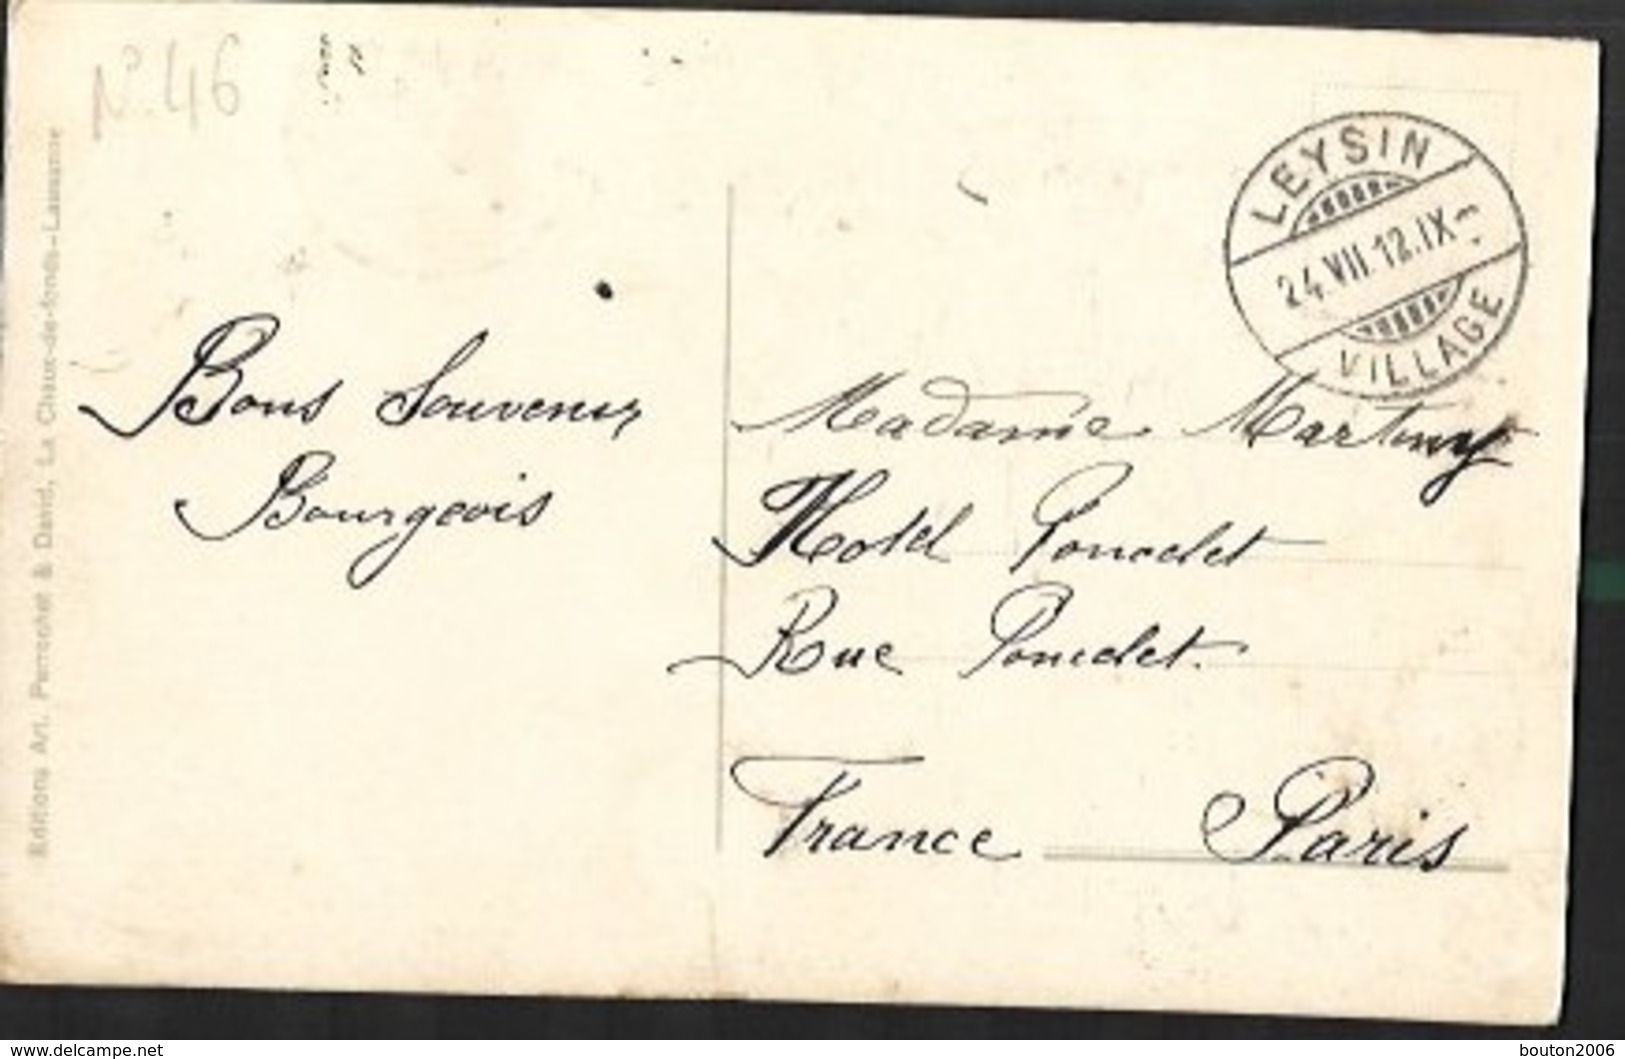 N° 46
LEYSIN
24.VII.12.IX
VILLAGE
Bons Souvenirs
Bourgeois
Madame Martiny
Hotel Poncelet
Rue Poncelet.
France Paris
Editions Art. Perrochet & David, La Chaux-de-fonds-Lausanne
www.delcampe.net
bouton2006